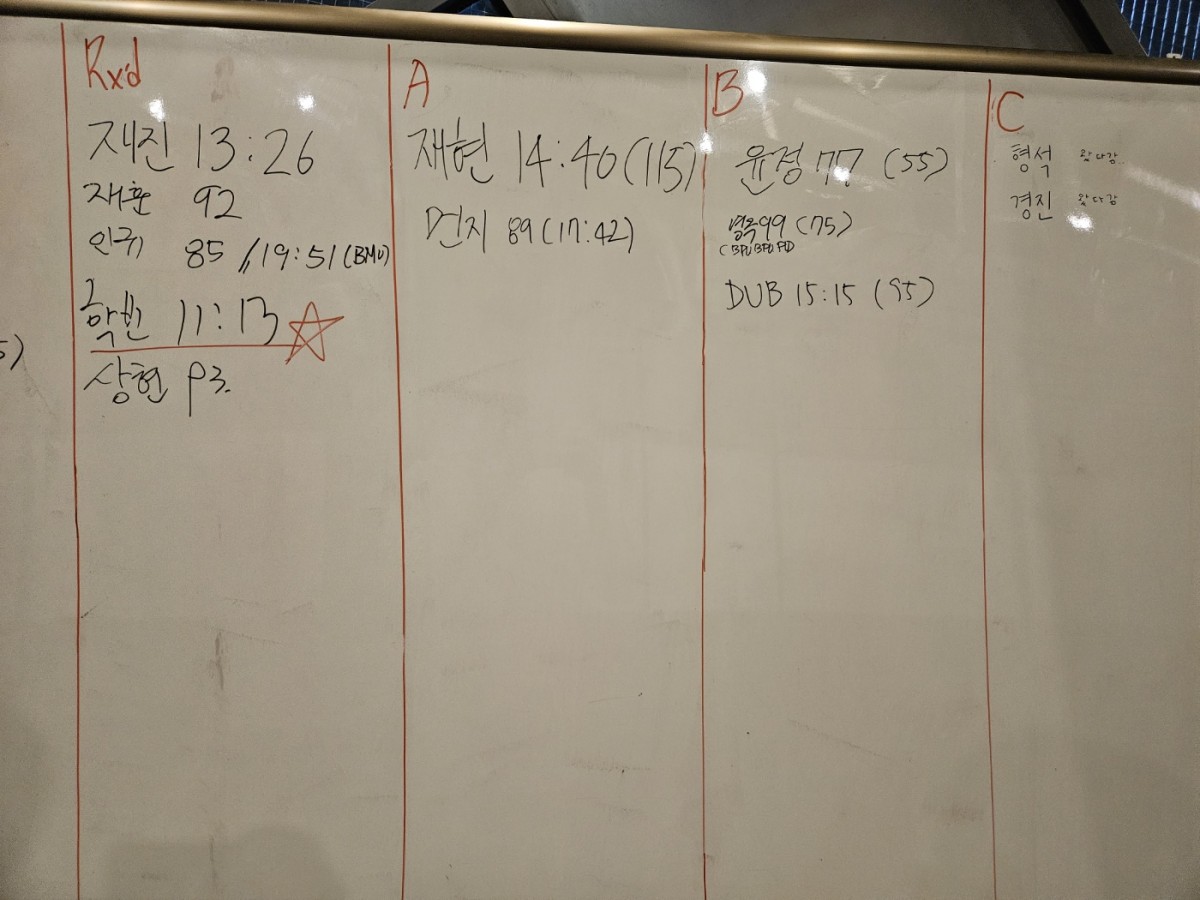 Rx'd
재진 13:26
재훈 92
인규 85 // 19:51 (BMU)
학빈 11:13
상현 93.
A
재현 14:40 (115)
민지 89 (17:42)
B
윤경 77 (55)
99 (75)
DUB 15:15 (95)
C
형석 왔다감
경진 왔다감
5)